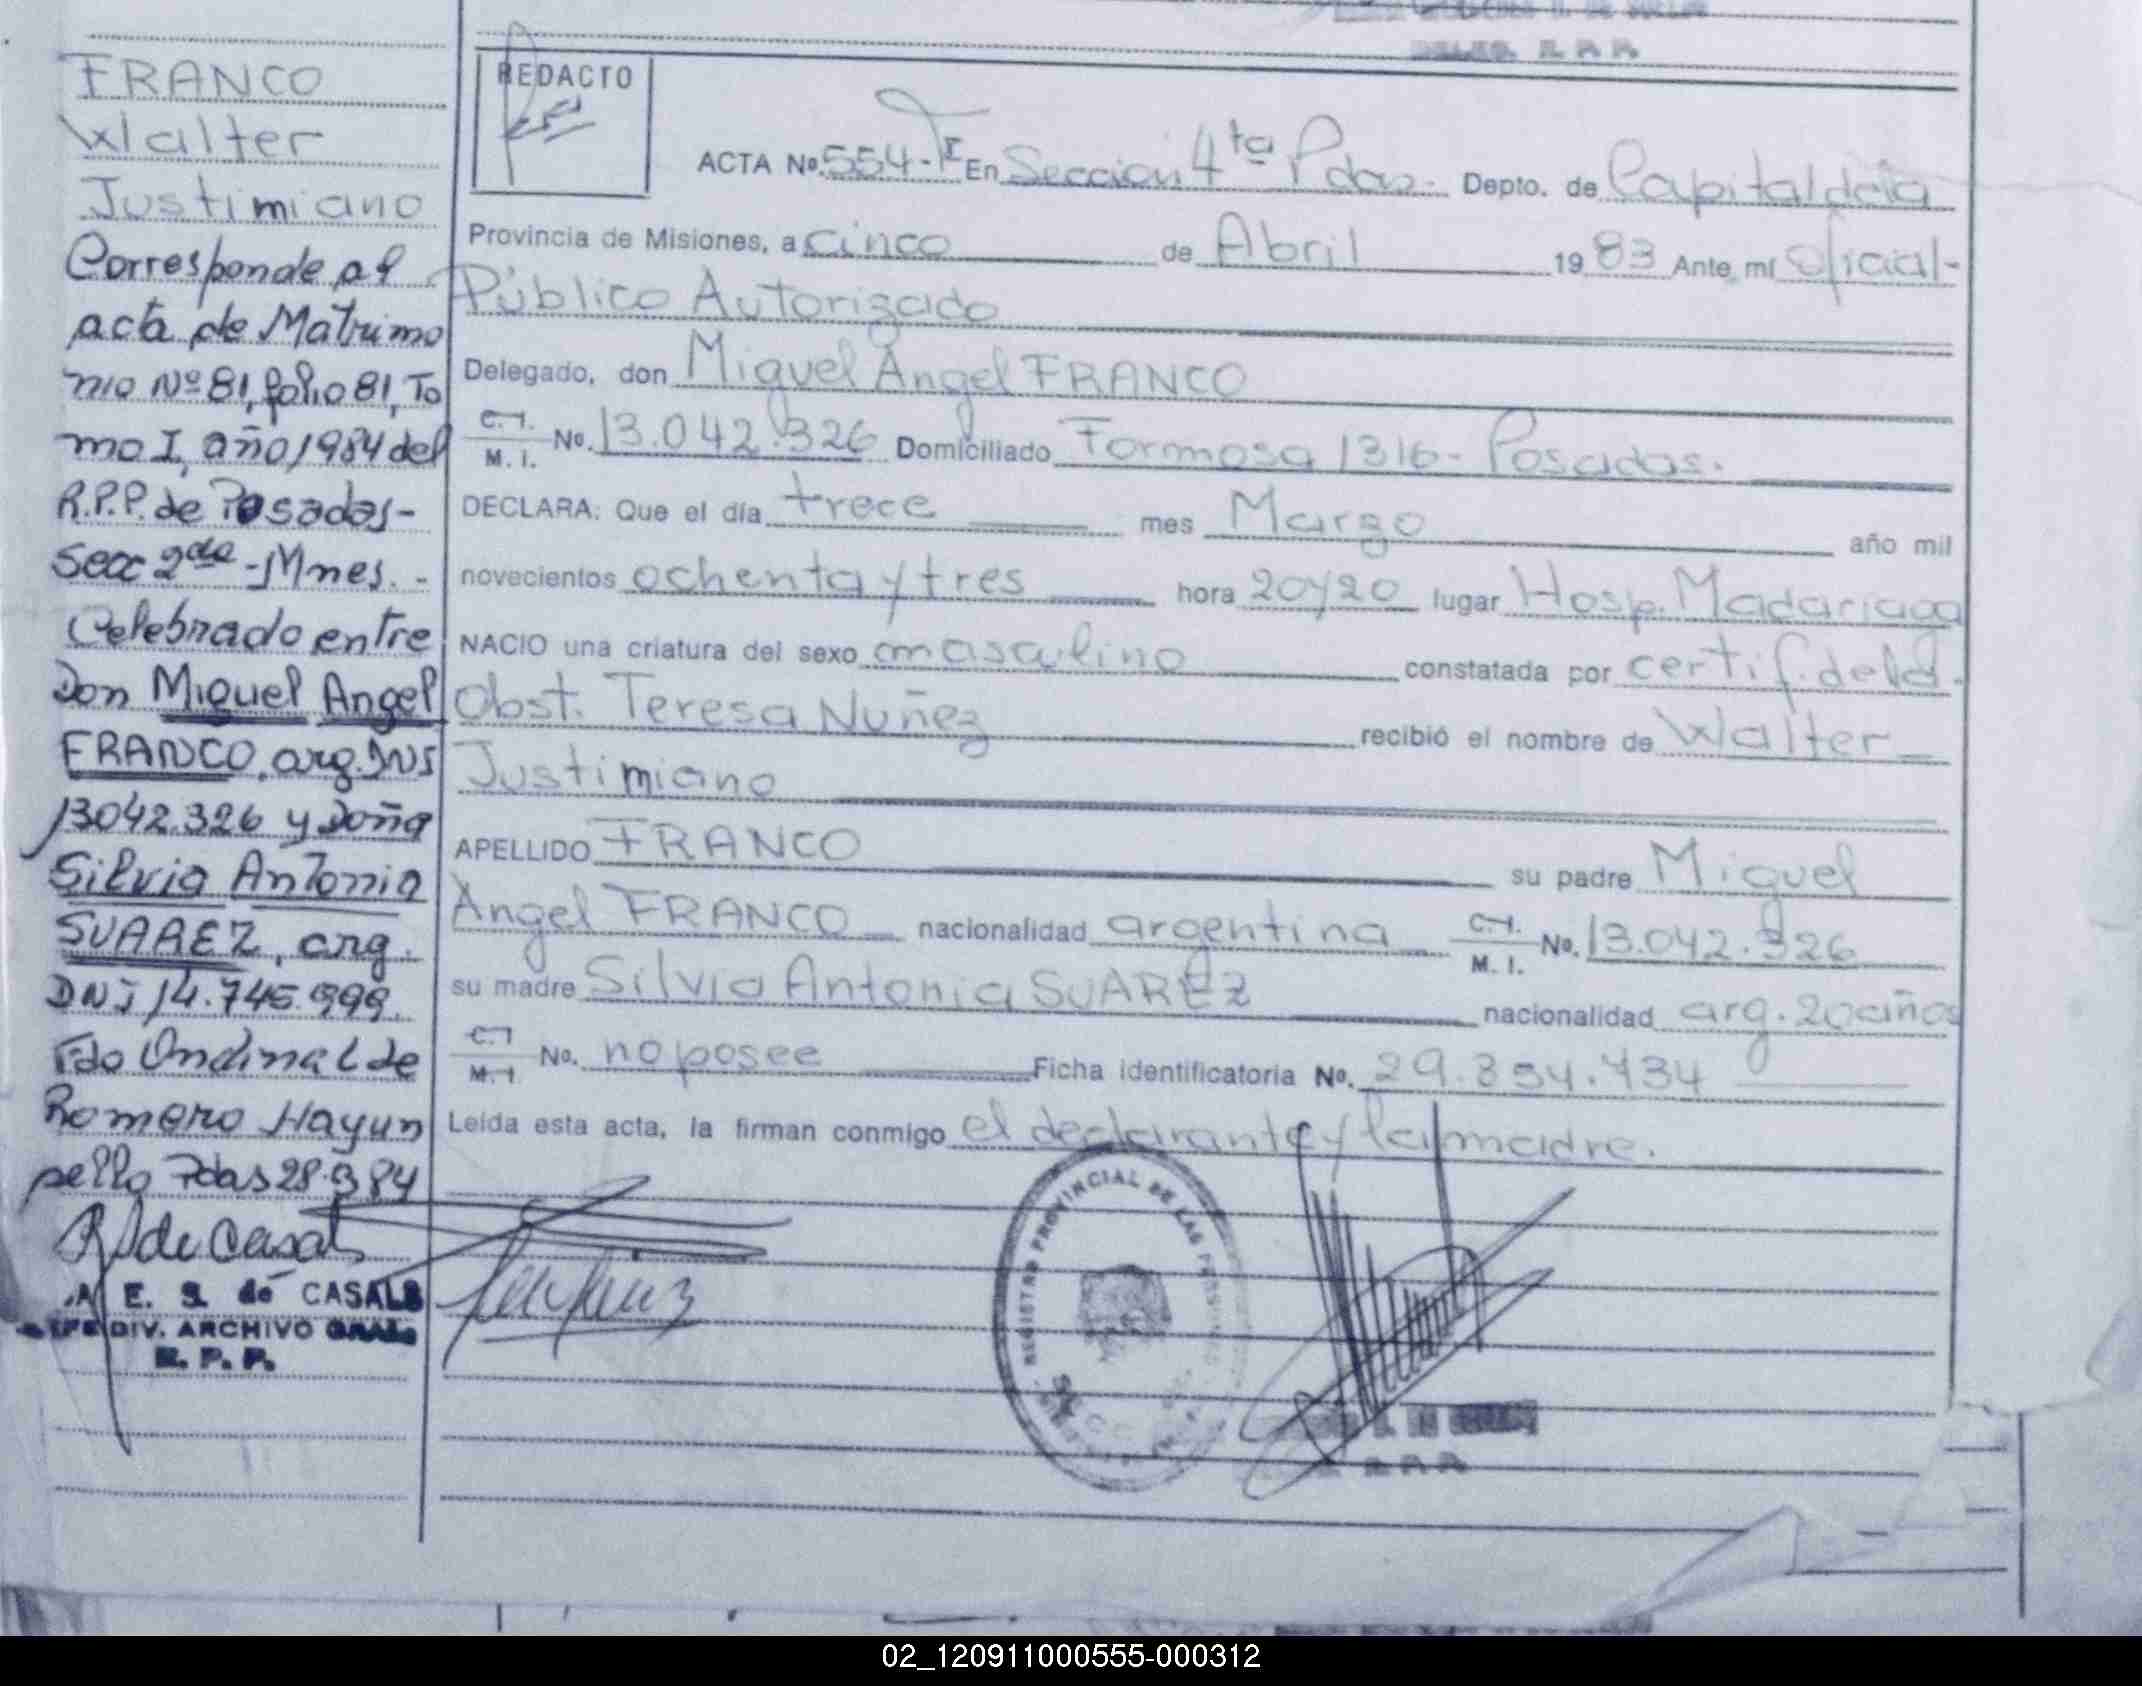 FRANCO
Walter
Justimiano
Corresponde al
acta de Matrimo
nio Nº 81, folio 81, To
mo I, año 1984 del
R.P.P. de Posadas-
Secc 2da - Mnes. -
Celebrado entre
Don Miguel Angel
FRANCO, arg. DNI
13042.326 y Doña
Silvia Antonia
SUAREZ, arg.
DNI 14.745.999
Fdo Ondina L de
Romero Hayun
pello Pdas 28.9 84
E. S. de CASALS
DIV. ARCHIVO GRAL.
R. P. P.
R. P. P.
REDACTO
ACTA Nº. 554-TI En Seccion 4ta Pdas.- Depto. de Capital de la
Provincia de Misiones, a cinco de Abril 1983 Ante mí Oficial-
Público Autorizado
Delegado, don Miguel Angel FRANCO
C.I. M.I. No. 13.042.326 Domiciliado Formosa 1316- Posadas.
DECLARA: Que el día trece mes Marzo año mil
novecientos ochenta y tres hora 20y20 lugar Hosp. Madariaga
NACIO una criatura del sexo masculino constatada por certif. de la
Obst. Teresa Nuñez recibió el nombre de Walter
Justimiano
APELLIDO FRANCO su padre Miguel
Angel FRANCO nacionalidad argentina C.I. M.I. No. 13.042.326
su madre Silvia Antonia SUAREZ nacionalidad arg. 20 años
C.I. M.I. No. no posee Ficha identificatoria No. 29.894.734
Leída esta acta, la firman conmigo el declarante y la madre.
REGISTRO PROVINCIAL DE LAS PERSONAS
R. P. P.
02_120911000555-000312